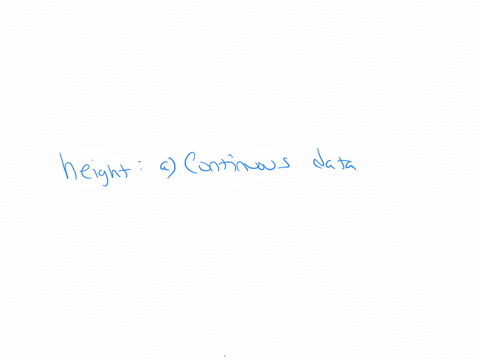 height: a) Continuous data